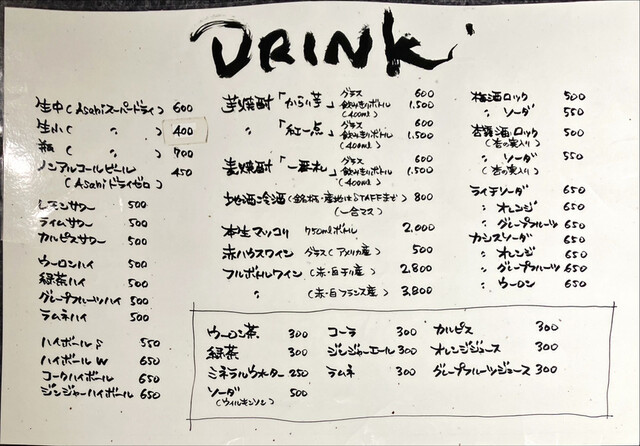 DRINK
生中(Asahiスーパードライ) 600
生小( 〃 ) 400
瓶( 〃 ) 700
ノンアルコールビール 450
(Asahiドライゼロ)
レモンサワー 500
ライムサワー 500
カルピスサワー 500
ウーロンハイ 500
緑茶ハイ 500
グレープフルーツハイ 500
ラムネハイ 500
ハイボール S 550
ハイボール W 650
コークハイボール 650
ジンジャーハイボール 650
芋焼酎「からり芋」 グラス 600
飲みきりボトル 1.500
(400ml)
〃 「紅一点」 グラス 600
飲みきりボトル 1.500
(400ml)
麦焼酎「一番札」 グラス 600
飲みきりボトル 1.500
(400ml)
地酒冷酒(銘柄・産地はSTAFFまで) 800
(一合マス)
本生マッコリ 750mlボトル 2,000
赤ハウスワイン グラス(アメリカ産) 500
フルボトルワイン (赤・白チリ産) 2,800
〃 (赤・白フランス産) 3,800
梅酒ロック 500
〃 ソーダ 550
杏露酒ロック 500
(杏の実入り)
〃 ソーダ 550
(杏の実入り)
ライチソーダ 650
〃 オレンジ 650
〃 グレープフルーツ 650
カシスソーダ 650
〃 オレンジ 650
〃 グレープフルーツ 650
〃 ウーロン 650
ウーロン茶 300
緑茶 300
ミネラルウォーター 250
ソーダ 500
(ウィルキンソン)
コーラ 300
ジンジャーエール 300
ラムネ 300
カルピス 300
オレンジジュース 300
グレープフルーツジュース 300